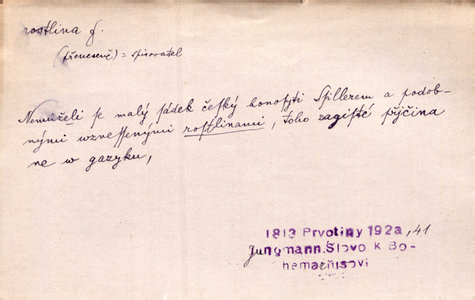 rostlina f.
(přeneseně) = spisovatel
Nemůželi se malý sádek český honosyti Ssillerem a podob-
nými wznessenými rostlinami, toho zagisté přjčina
ne w gazyku,
1813 Prvotiny 192a, 41
Jungmann. Slovo k Bo-
hemariusovi